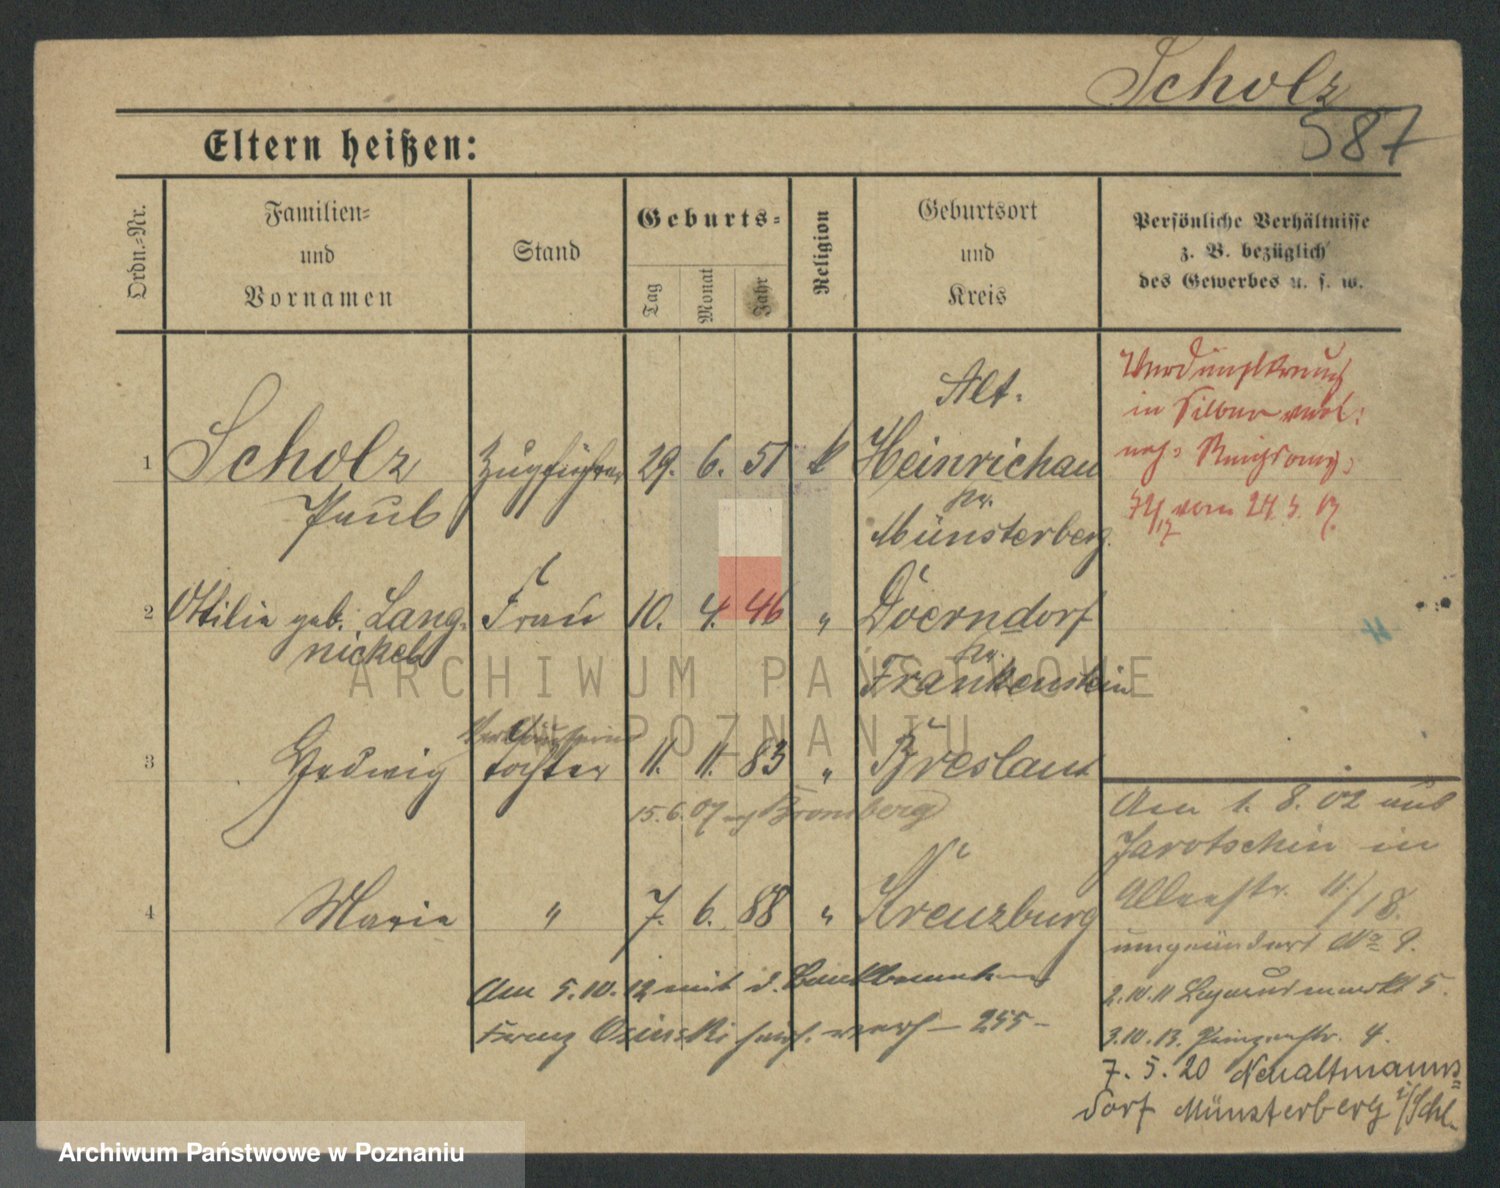 Scholz
587
Eltern heißen:
Ordn.-Nr.
Familien-
und
Vornamen
Stand
Geburts-
Tag
Monat
Jahr
Religion
Geburtsort
und
Kreis
Persönliche Verhältnisse
z. B. bezüglich
des Gewerbes u. s. w.
1 Scholz Zugführer 29. 6. 51 k Alt-
Heinrichau
Paul
Kr.
Münsterberg
in Silber verl.
vom 24. 3. 17.
2 Ottilie geb. Lang- Frau 10. 4. 46 " Doerndorf
nickel
Kr.
Frankenstein
3 Hedwig Tochter 11. 11. 83 " Breslau
15.6.07 Bromberg
4 Marie " 7. 6. 88 " Kreuzburg
Am 5.10.12 mit d.
Franz Osinski verh. 255
Am 1. 8. 02 aus
Jarotschin in
11/18.
umgeändert No 9.
2.10.11 5.
3.10.13. 4.
7. 5. 20 Neualtmanns-
dorf Münsterberg i/Schl.
ARCHIWUM PAŃSTWOWE
W POZNANIU
Archiwum Państwowe w Poznaniu